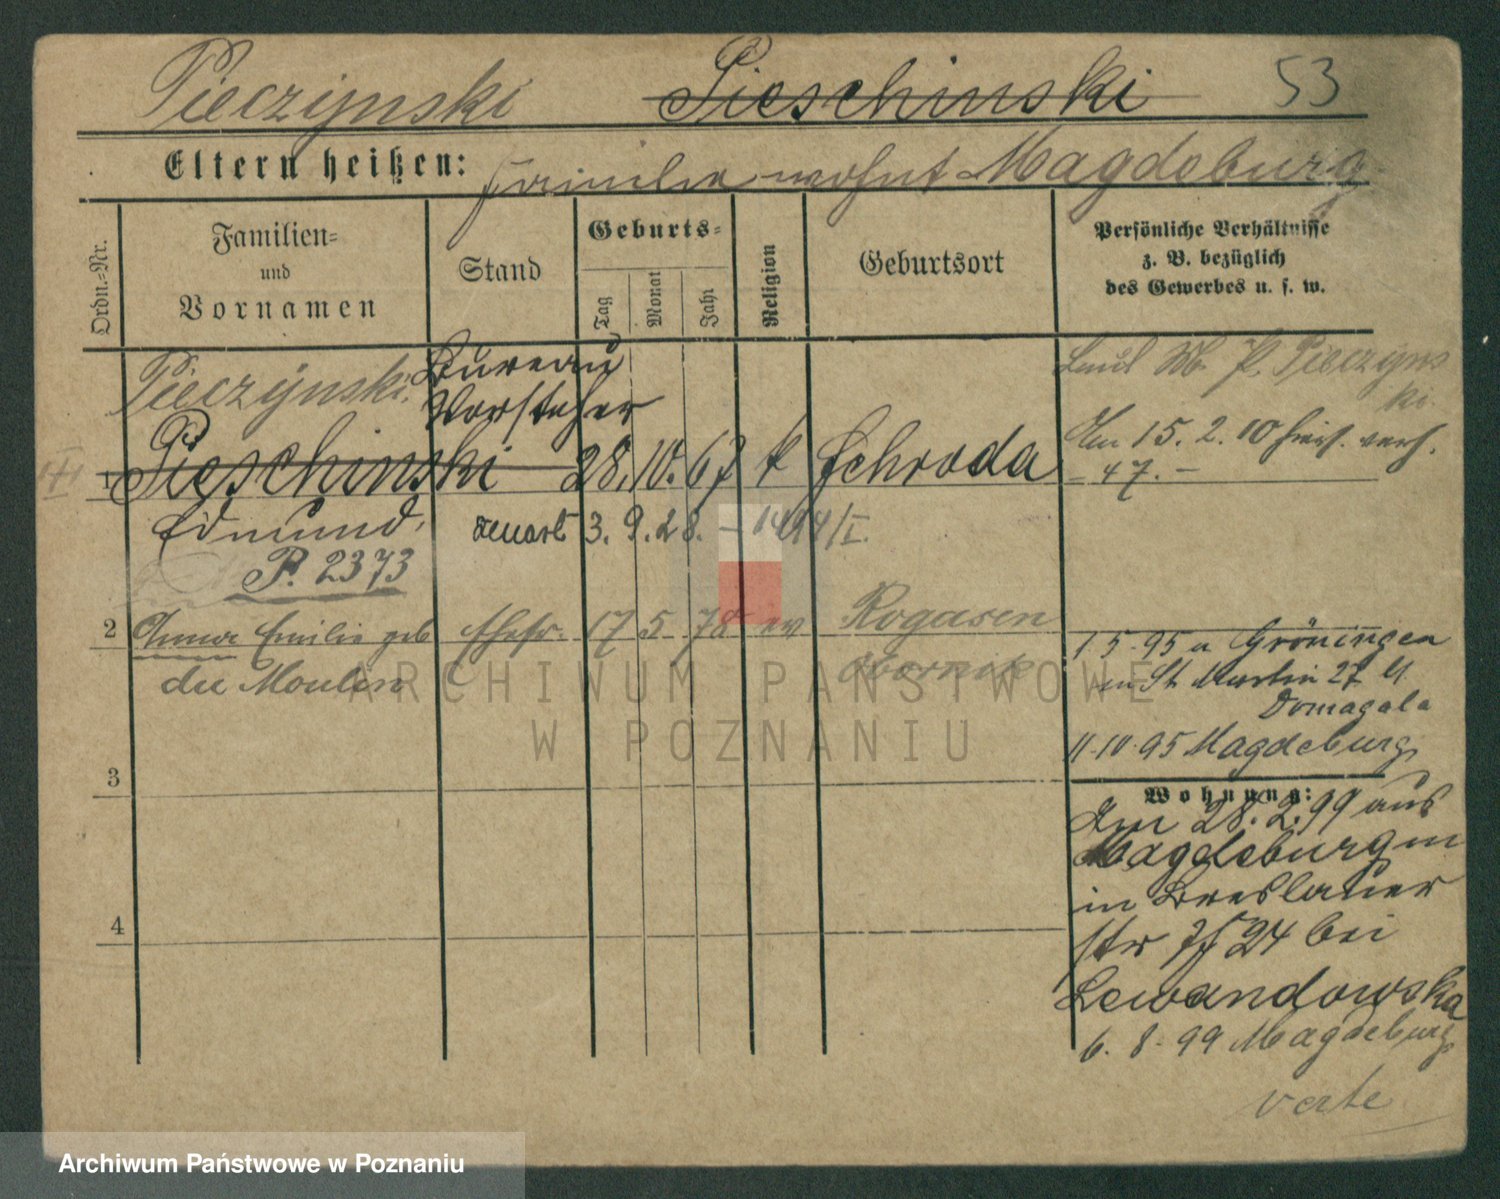 Pieczynski Pieschinski 53
Eltern heißen: Familie wohnt Magdeburg
Ordn.=Nr.
Familien=
und
Vornamen
Stand
Geburts=
Tag
Monat
Jahr
Religion
Geburtsort
Persönliche Verhältnisse
z. B. bezüglich
des Gewerbes u. s. w.
Pieczynski
Bureau
Vorsteher
1 Pieschinski 28. 10. 67 k Schroda
Edmund
3. 9. 28. – 1494/I.
P. 2373
Pieczyns
ki.
Am 15. 2. 10
– 47. –
2 Anna Emilie geb Ehefr. 17 5 78 ev Rogasen
du Moulin
Obornik
1 5 95 a Gröningen
in St Martin 27 II
Domagala
11.10.95 Magdeburg
3
Wohnung:
Am 28. 2. 99 aus
Magdeburg
in Breslauer
str 24 bei
Lewandowska
6. 8. 99 Magdeburg
verte
4
ARCHIWUM PAŃSTWOWE
W POZNANIU
Archiwum Państwowe w Poznaniu